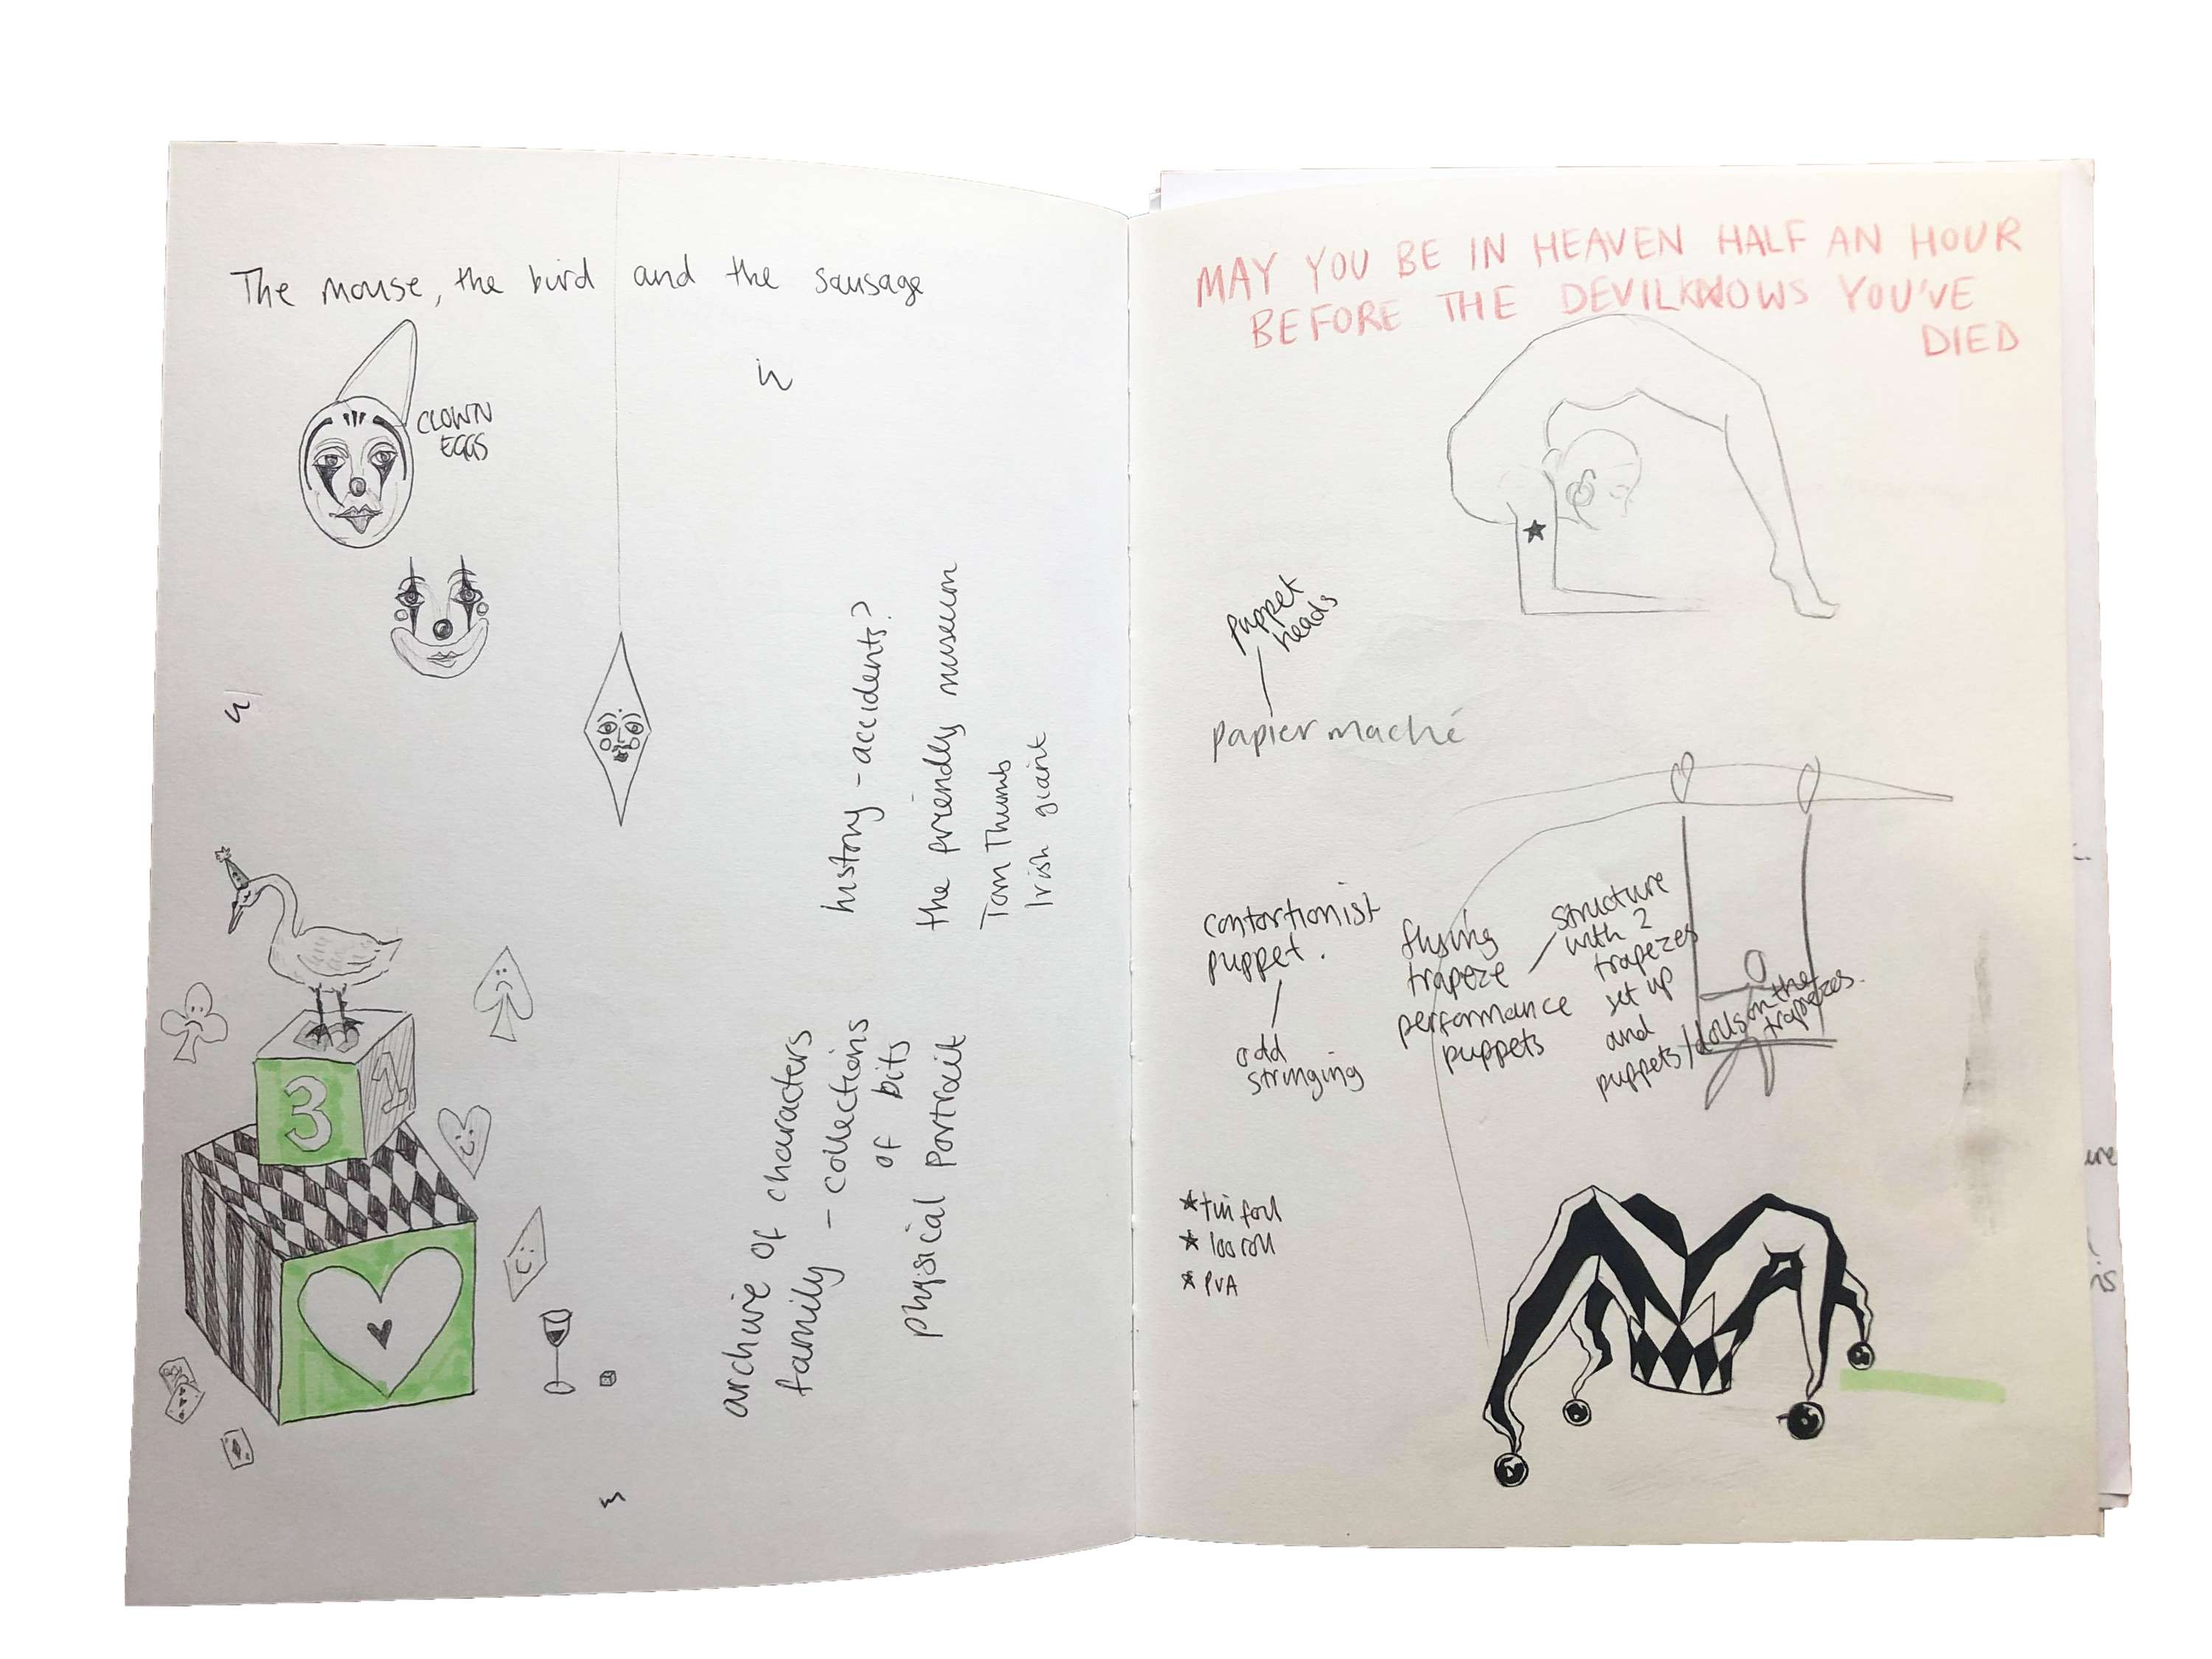 The mouse, the bird and the sausage
CLOWN
EGGS
history - accidents?
the friendly museum
Tom Thumb
Irish giant
archive of characters
family - collections
of bits
physical Portrait
3
1
MAY YOU BE IN HEAVEN HALF AN HOUR
BEFORE THE DEVIL KNOWS YOU'VE
DIED
puppet
heads
papier maché
contortionist
puppet.
odd
stringing
flying
trapeze
performance
puppets
structure
with 2
trapezes
set up
and
puppets/dolls on the
trapezes.
★ tin foil
★ loo roll
★ PVA